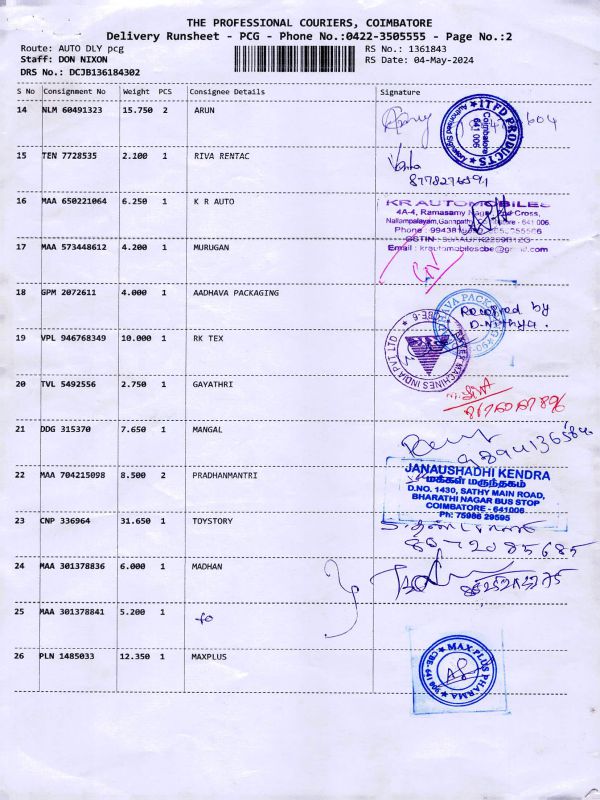 THE PROFESSIONAL COURIERS, COIMBATORE
Delivery Runsheet - PCG - Phone No.:0422-3505555 - Page No.:2
Route: AUTO DLY pcg
RS No.: 1361843
Staff: DON NIXON
RS Date: 04-May-2024
DRS No.: DCJB136184302
S No Consignment No Weight PCS Consignee Details Signature
14 NLM 60491323 15.750 2 ARUN
ITFD PRODUCTS
Coimbatore
641 006
15 TEN 7728535 2.100 1 RIVA RENTAC
16 MAA 650221064 6.250 1 K R AUTO
KR AUTOMOBILES
4A-4, Ramasamy Nagar, 2nd Cross,
Nallampalayam, Ganapathy, Coimbatore - 641 006
17 MAA 573448612 4.200 1 MURUGAN
Email : krautomobilescbe@gmail.com
18 GPM 2072611 4.000 1 AADHAVA PACKAGING
Received by
D.Nithya.
19 VPL 946768349 10.000 1 RK TEX
MACHINES INDIA PVT LTD
20 TVL 5492556 2.750 1 GAYATHRI
21 DDG 315370 7.650 1 MANGAL
22 MAA 704215098 8.500 2 PRADHANMANTRI
JANAUSHADHI KENDRA
மக்கள் மருந்தகம்
D.NO. 1430, SATHY MAIN ROAD,
BHARATHI NAGAR BUS STOP
COIMBATORE - 641006
Ph: 75986 29595
23 CNP 336964 31.650 1 TOYSTORY
8072085685
24 MAA 301378836 6.000 1 MADHAN
25 MAA 301378841 5.200 1
26 PLN 1485033 12.350 1 MAXPLUS
MAX PLUS PHARMA
CBE- 641 006